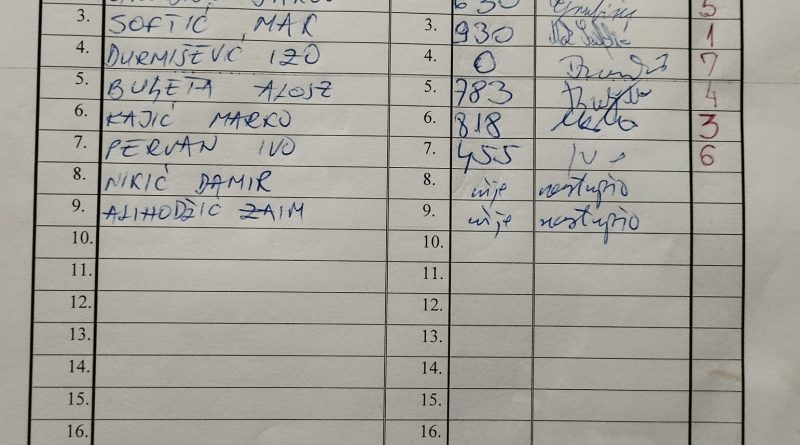 630 5
3. SOFTIĆ MAR 3. 930 1
4. DURMIŠEVIĆ IZO 4. 0 7
5. BUĻETA ALOJZ 5. 783 4
6. KAJIĆ MARKO 6. 818 3
7. PERVAN IVO 7. 455 6
8. NIKIĆ DAMIR 8. nije nastupio
9. ALIHODŽIĆ ZAIM 9. nije nastupio
10. 10.
11. 11.
12. 12.
13. 13.
14. 14.
15. 15.
16. 16.